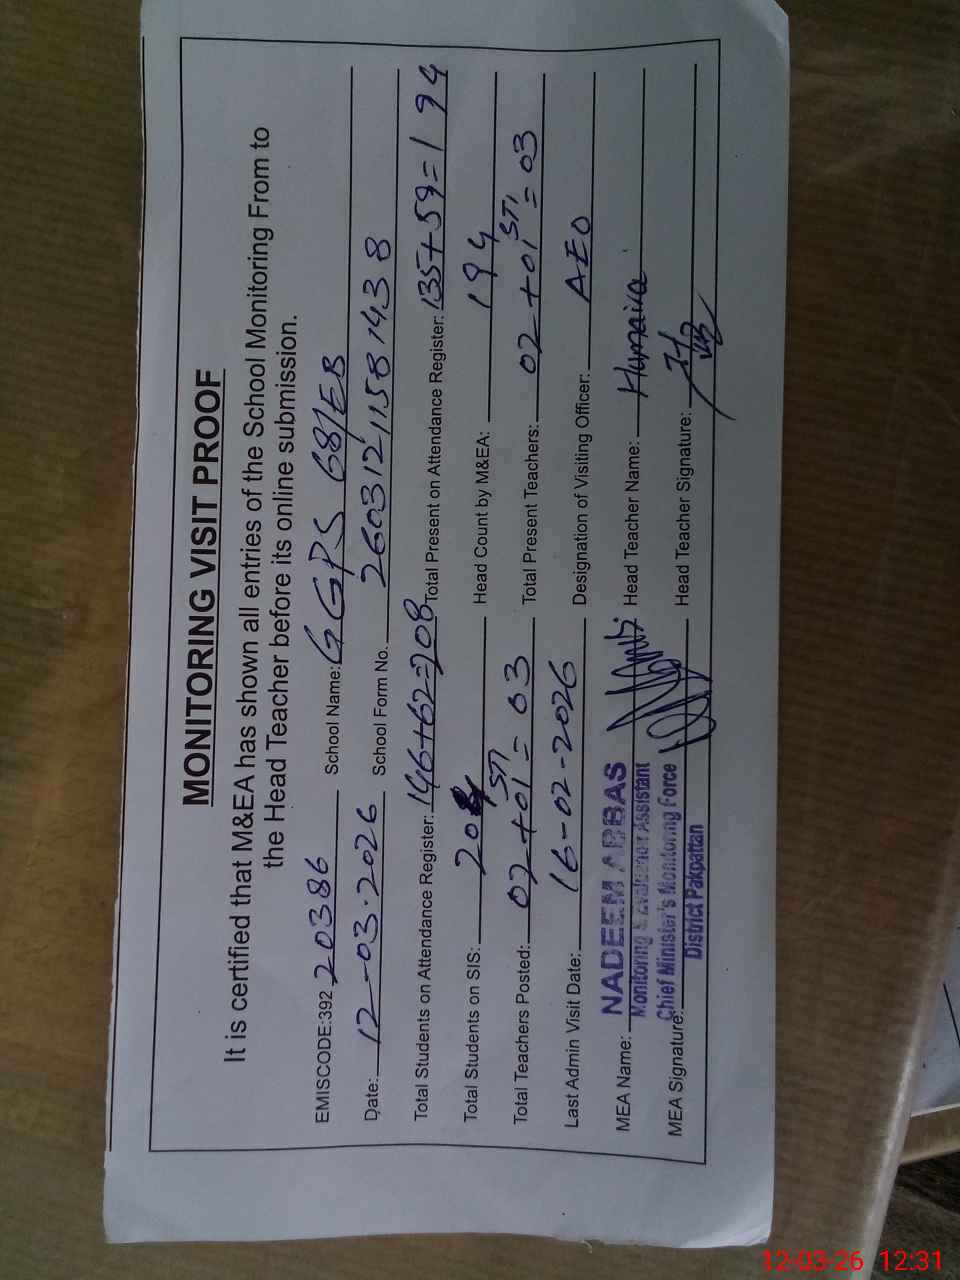 MONITORING VISIT PROOF
It is certified that M&EA has shown all entries of the School Monitoring From to
the Head Teacher before its online submission.
EMISCODE:392 20386 School Name: GGPS 68/EB
Date: 12-03-2026 School Form No. 26031211581438
Total Students on Attendance Register: 146+62=208 Total Present on Attendance Register: 135+59=194
Total Students on SIS: Head Count by M&EA: 194
Total Teachers Posted: 02+01 STI = 03 Total Present Teachers: 02+01 STI = 03
Last Admin Visit Date: 16-02-2026 Designation of Visiting Officer: AEO
MEA Name: NADEEM ABBAS Head Teacher Name: Humaira
Monitoring & Evaluation Assistant
Chief Minister's Monitoring Force
MEA Signature: Head Teacher Signature:
District Pakpattan
12-03-26 12:31